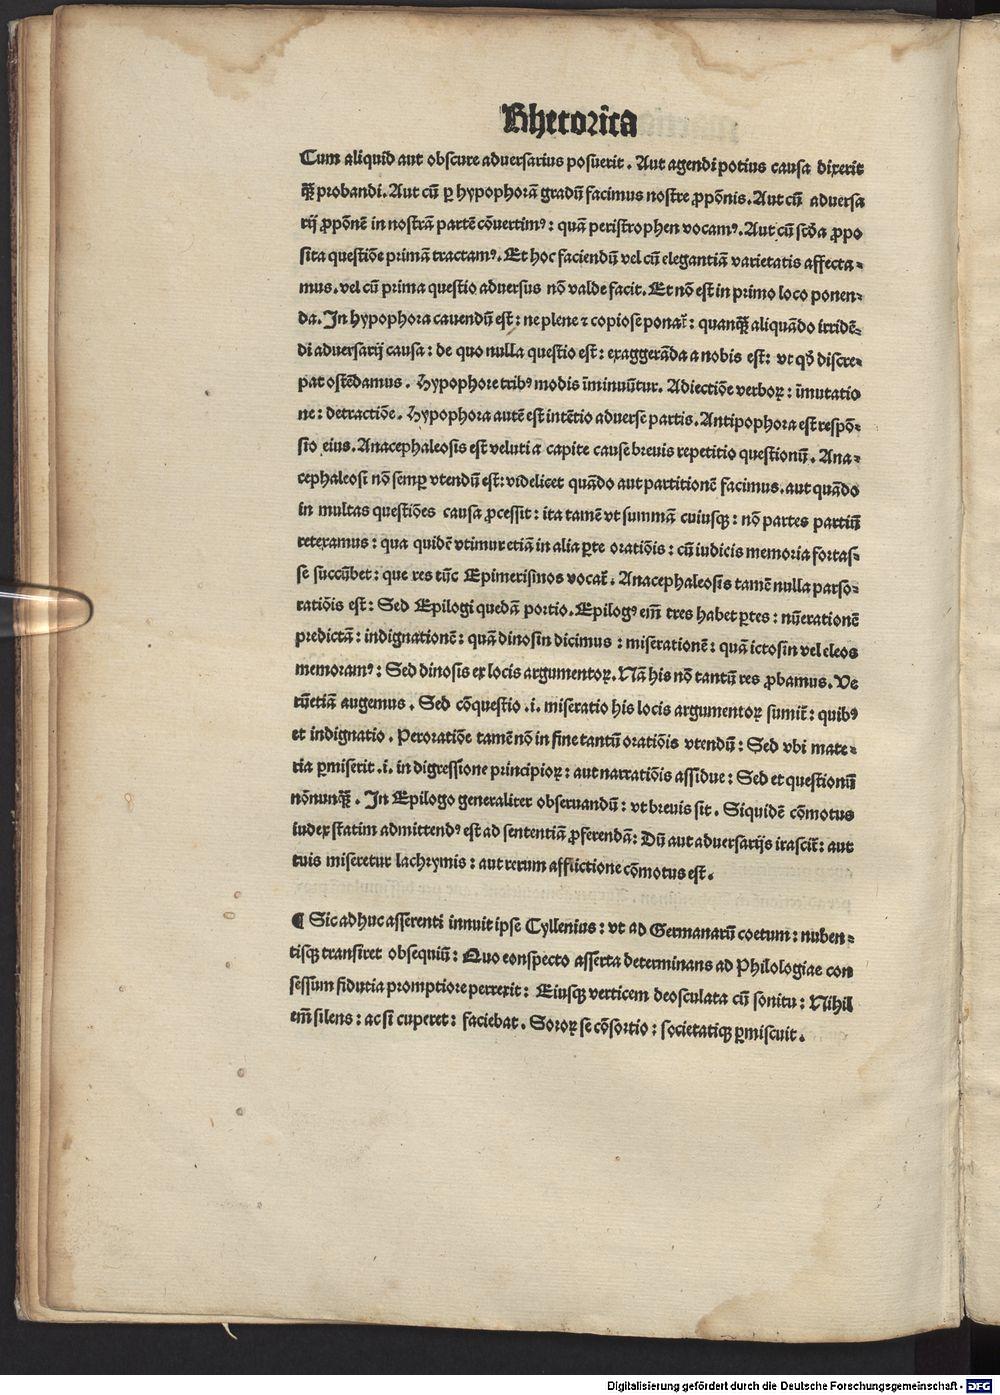 Rhetorica
Cum aliquid aut obscure aduersarius posuerit. Aut agendi potius causa dixerit
q̃ꝫ probandi. Aut cũ ꝑ hypophorã gradũ facimus nostre ꝓpõnis. Aut cũ aduersa
rij ꝓpõnẽ in nostrã partẽ cõuertimꝰ: quã peristrophen vocamꝰ. Aut cũ scd̃a ꝓpo
sita questiõe primã tractamꝰ. Et hoc faciendũ vel cũ elegantiã varietatis affecta-
mus. vel cũ prima questio aduersus nõ valde facit. Et nõ est in primo loco ponen-
da. In hypophora cauendũ est: ne plene ⁊ copiose ponat̃: quanq̃ꝫ aliquãdo irridẽ-
di aduersarij causa: de quo nulla questio est: exaggerãda a nobis est: vt qđ discre-
pat ostẽdamus. Hypophore tribꝰ modis im̃inuũtur. Adiectiõe verboꝝ: im̃utatio
ne: detractiõe. Hypophora autẽ est intẽtio aduerse partis. Antipophora est respõ-
sio eius. Anacephaleosis est veluti a capite cause breuis repetitio questionũ. Ana-
cephaleosi nõ semꝑ vtendũ est: videlicet quãdo aut partitionẽ facimus. aut quãdo
in multas questiões causa ꝓcessit: ita tamẽ vt summã cuiusqꝫ: nõ partes partiũ
retexamus: qua quidẽ vtimur etiã in alia ꝑte oratiõis: cũ iudicis memoria fortas-
se succũbet: que res tũc Epimerismos vocat̃. Anacephaleosis tamẽ nulla pars o-
ratiõis est: Sed Epilogi quedã portio. Epilogꝰ em̃ tres habet ꝑtes: nũerationẽ
predictã: indignationẽ: quã dinosin dicimus: miserationẽ: quã ictosin vel eleos
memoramꝰ: Sed dinosis ex locis argumentoꝝ. Nã his nõ tantũ res ꝓbamus. Ve
rũetiã augemus. Sed cõquestio .i. miseratio his locis argumentoꝝ sumit̃: quibꝰ
et indignatio. Peroratiõe tamẽ nõ in fine tantũ oratiõis vtendũ: Sed vbi mate-
ria ꝑmiserit .i. in digressione principioꝝ: aut narratiõis assidue: Sed et questionũ
nõnunq̃ꝫ. In Epilogo generaliter obseruandũ: vt breuis sit. Siquidẽ cõmotus
iudex statim admittendꝰ est ad sententiã ꝓferendã: Dũ aut aduersarijs irascit̃: aut
tuis miseretur lachrymis: aut rerum afflictione cõmotus est.
¶ Sic adhuc asserenti innuit ipse Cyllenius: vt ad Germanarũ coetum: nuben-
tisqꝫ transiret obsequiũ: Quo conspecto asserta determinans ad Philologiae con
sessum fidutia promptiore perrexit: Eiusqꝫ verticem deosculata cũ sonitu: Nihil
em̃ silens: ac si cuperet: faciebat. Soroꝝ se cõsortio: societatiqꝫ ꝑmiscuit.
Digitalisierung gefördert durch die Deutsche Forschungsgemeinschaft - DFG